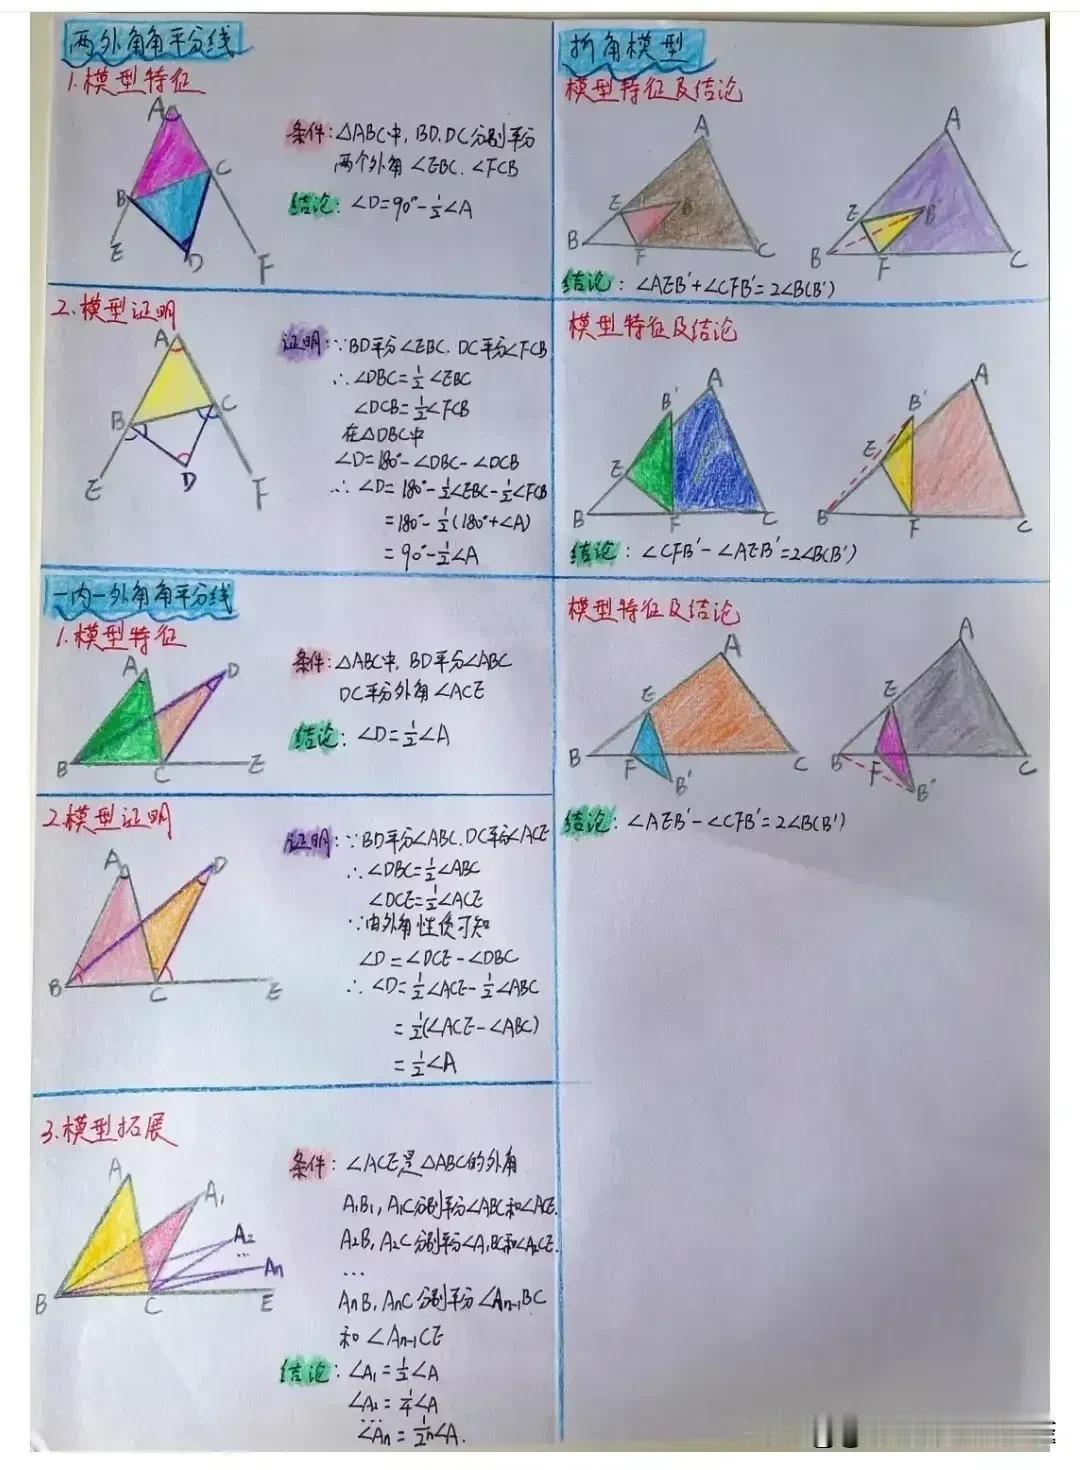 两外角角平分线
1.模型特征
A
B
C
E
D
F
条件:△ABC中, BD, DC分别平分
两个外角∠EBC, ∠FCB
结论: ∠D=90°-½∠A
2.模型证明
A
B
C
E
D
F
证明:∵BD平分∠EBC, DC平分∠FCB
∴∠DBC=½∠EBC
∠DCB=½∠FCB
在△DBC中
∠D=180°-∠DBC-∠DCB
∴∠D=180°-½∠EBC-½∠FCB
=180°-½(180°+∠A)
=90°-½∠A
一内一外角角平分线
1.模型特征
A
D
B
C
E
条件:△ABC中, BD平分∠ABC
DC平分外角∠ACE
结论: ∠D=½∠A
2.模型证明
A
D
B
C
E
证明:∵BD平分∠ABC, DC平分∠ACE
∴∠DBC=½∠ABC
∠DCE=½∠ACE
∵由外角性质可知
∠D=∠DCE-∠DBC
∴∠D=½∠ACE-½∠ABC
=½(∠ACE-∠ABC)
=½∠A
3.模型拓展
A
A₁
A₂
...
An
B
C
E
条件: ∠ACE是△ABC的外角
A₁B₁, A₁C分别平分∠ABC和∠ACE.
A₂B, A₂C分别平分∠A₁BC和∠A₂CE.
...
AnB, AnC分别平分∠An-₁BC
和∠An-₁CE
结论: ∠A₁=½∠A
∠A₂=¼∠A
...
∠An=1/2ⁿ∠A.
折角模型
模型特征及结论
A
E
B'
B
F
C
A
E
B'
B
F
C
结论: ∠AEB'+∠CFB'=2∠B(B')
模型特征及结论
A
B'
E
B
F
C
A
B'
E
B
F
C
结论: ∠CFB'-∠AEB'=2∠B(B')
模型特征及结论
A
E
B
F
C
B'
A
E
B
F
C
B'
结论: ∠AEB'-∠CFB'=2∠B(B')